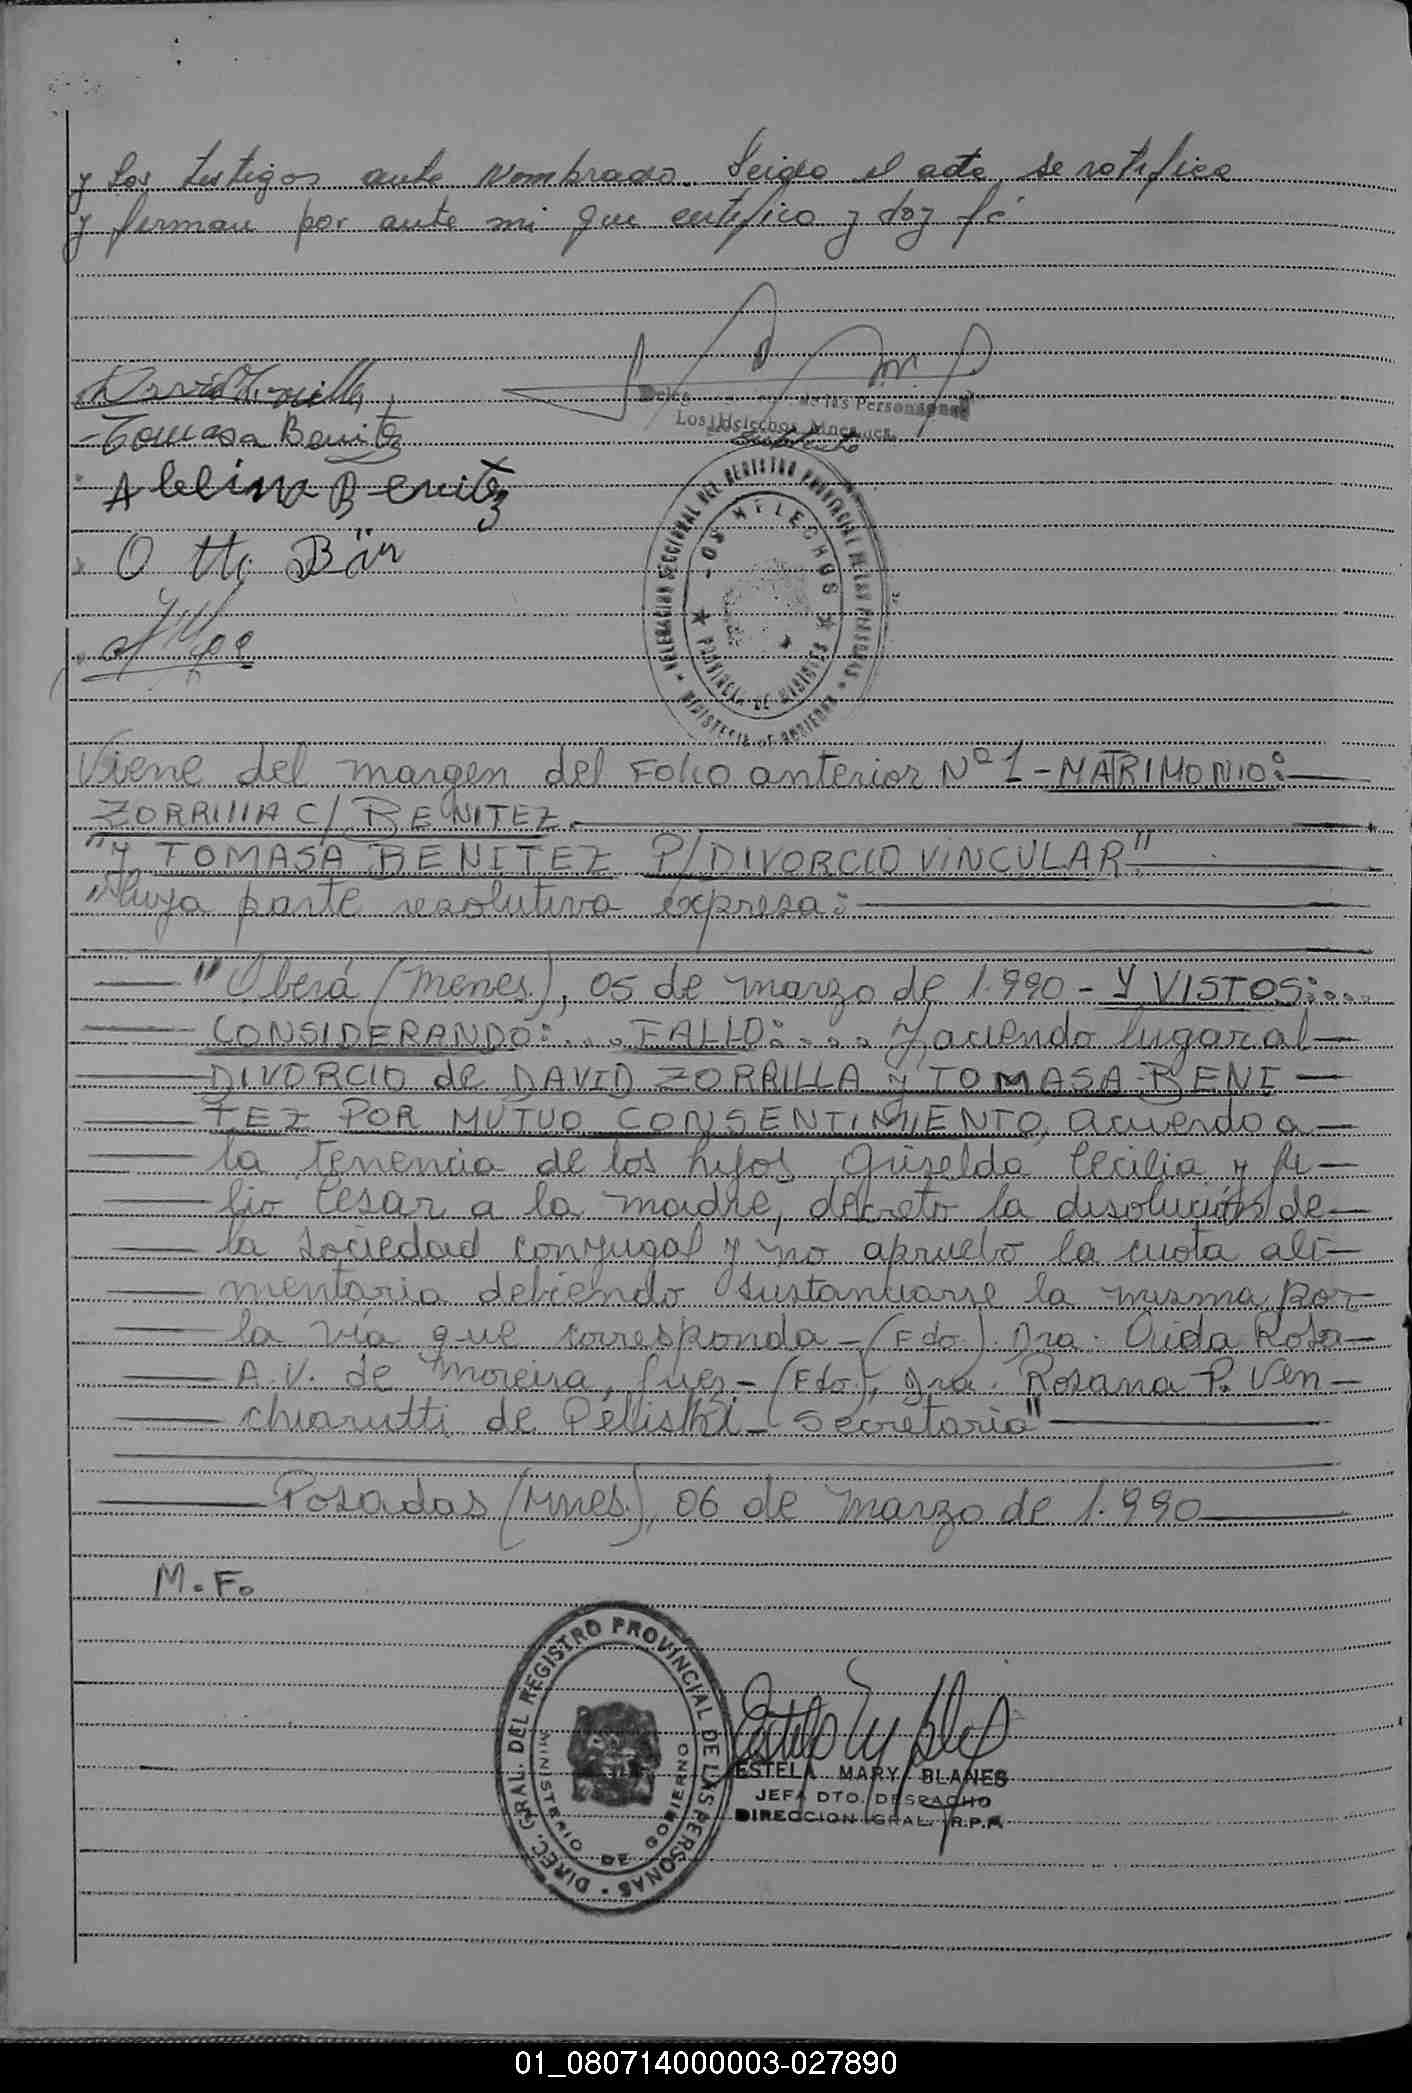 y los testigos ante nombrado. Leida el acta, se ratifica
y firman por ante mi que certifico y doy fé
David Zorrilla
Tomasa Benitez
de las Personas
Los Helechos, Misiones
Albina Benitez
Otto Bär
DELEGACION SECCIONAL DEL REGISTRO PROVINCIAL DE LAS PERSONAS
MINISTERIO DE GOBIERNO
LOS HELECHOS
PROVINCIA DE MISIONES
Viene del margen del Folio anterior Nº 1 - MATRIMONIO:
ZORRILLA C/ BENITEZ.
"Y TOMASA BENITEZ P/DIVORCIO VINCULAR"
"Cuya parte resolutiva expresa:
"Oberá (Mnes.), 05 de marzo de 1.990 - Y VISTOS:...
CONSIDERANDO:.... FALLO:.... Haciendo lugar al
DIVORCIO de DAVID ZORRILLA y TOMASA BENI
TEZ POR MUTUO CONSENTIMIENTO, acuerdo a
la tenencia de los hijos Griselda Cecilia y Ju
lio Cesar a la madre, decreto la disolución de
la sociedad conyugal y no apruebo la cuota ali
mentaria debiendo sustanciarse la misma por
la vía que corresponda - (Fdo). Dra. Aida Rosa
A.V. de Moreira, Juez - (Fdo), Dra. Rosana P. Ven
chiarutti de Peliski - Secretaria"
Posadas (Mnes.), 06 de Marzo de 1.990
M.F.
DIREC. GRAL. DEL REGISTRO PROVINCIAL DE LAS PERSONAS
MINISTERIO DE GOBIERNO
ESTELA MARY BLANES
JEFA DTO. DESPACHO
DIRECCION GRAL. R.P.P.
01_080714000003-027890